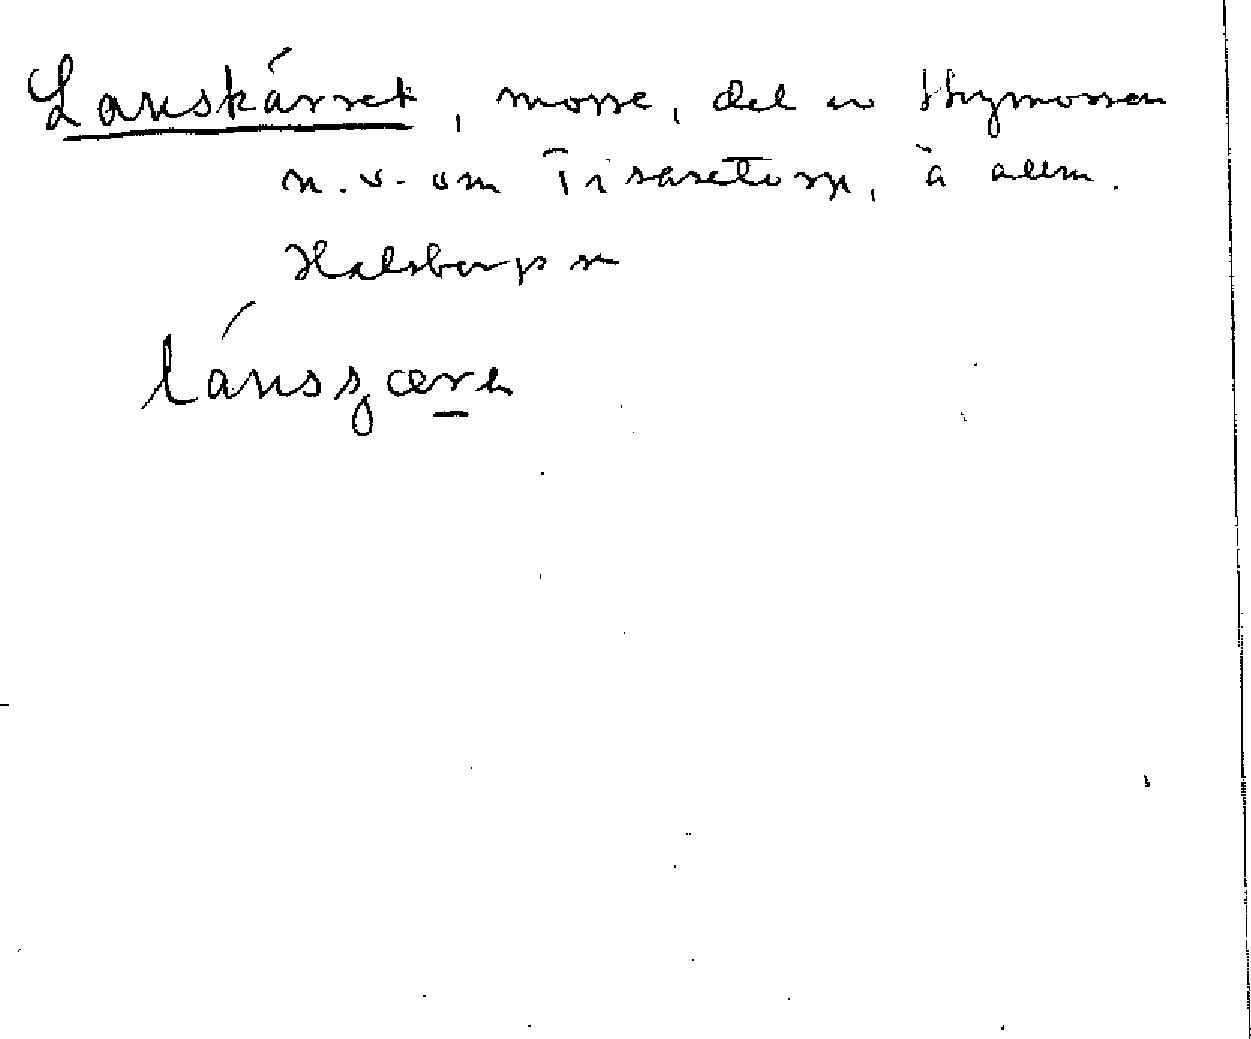 Lanskärret, mosse, del av Skymossen
n. v. om Tisaretorp, å allm.
Halsbergs sn
lánsʂæræ